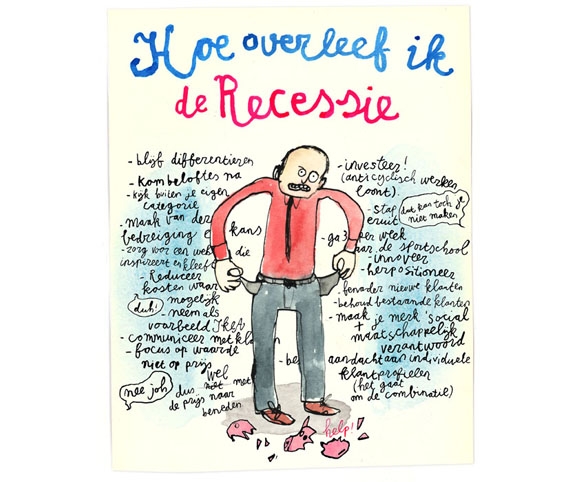 Hoe overleef ik
de Recessie
- blijf differentieren
- kom beloftes na
- kijk buiten je eigen
categorie
- maak van deze
bedreiging een kans
- zorg voor een web die
inspireert en kleeft
- Reduceer
kosten waar
mogelijk
duh!
- neem als
voorbeeld IKEA
- communiceer met
- focus op waarde
niet op prijs
nee joh
dus wel met
de prijs naar
beneden
- investeer!
(anticyclisch werken
loont)
- stap
eruit
dat kan toch
niet maken
- ga 3 per week
naar de sportschool
- innoveer
- herpositioneer
- benader nieuwe klanten
- behoud bestaande klanten
- maak je merk 'social
+
maatschappelijk
verantwoord
- be
aandacht aan individuele
klantprofielen
(het gaat
om de combinatie)
help!